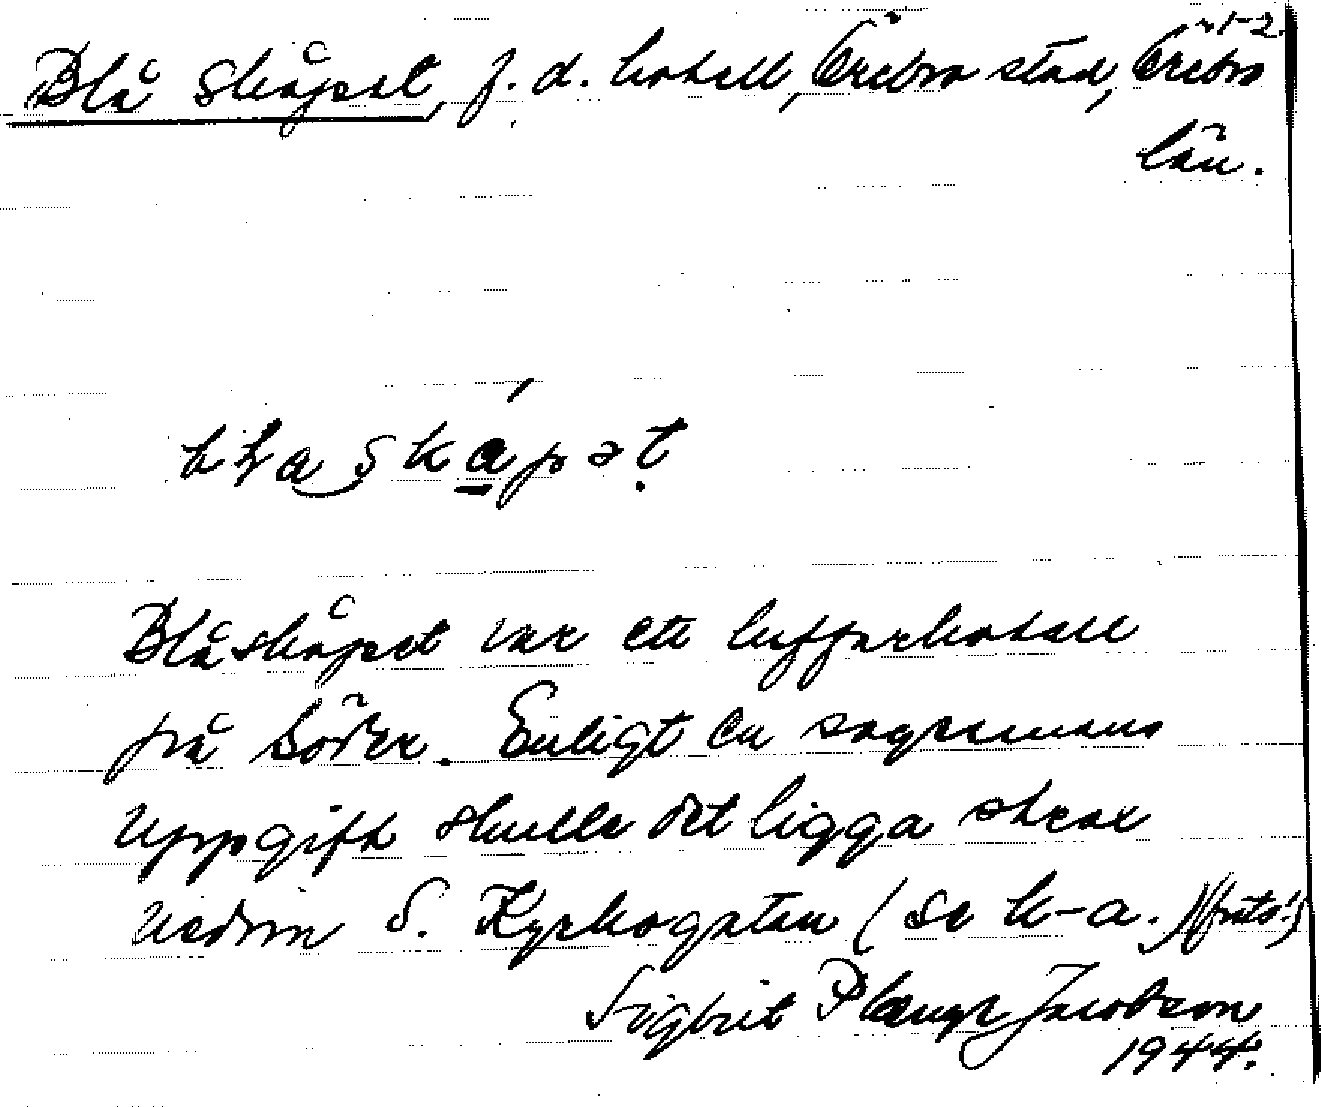 1-2.
Blå skåpet, f.d. hotell, Örebro stad, Örebro
län.
blaskápət
Blåskåpet var ett luffarhotell
på Söder. Enligt en sagesmans
uppgift skulle det ligga strax
nedom S. Kyrkogatan (se k-a.) (forts!)
Sigbrit Plænge Jacobson
1944.